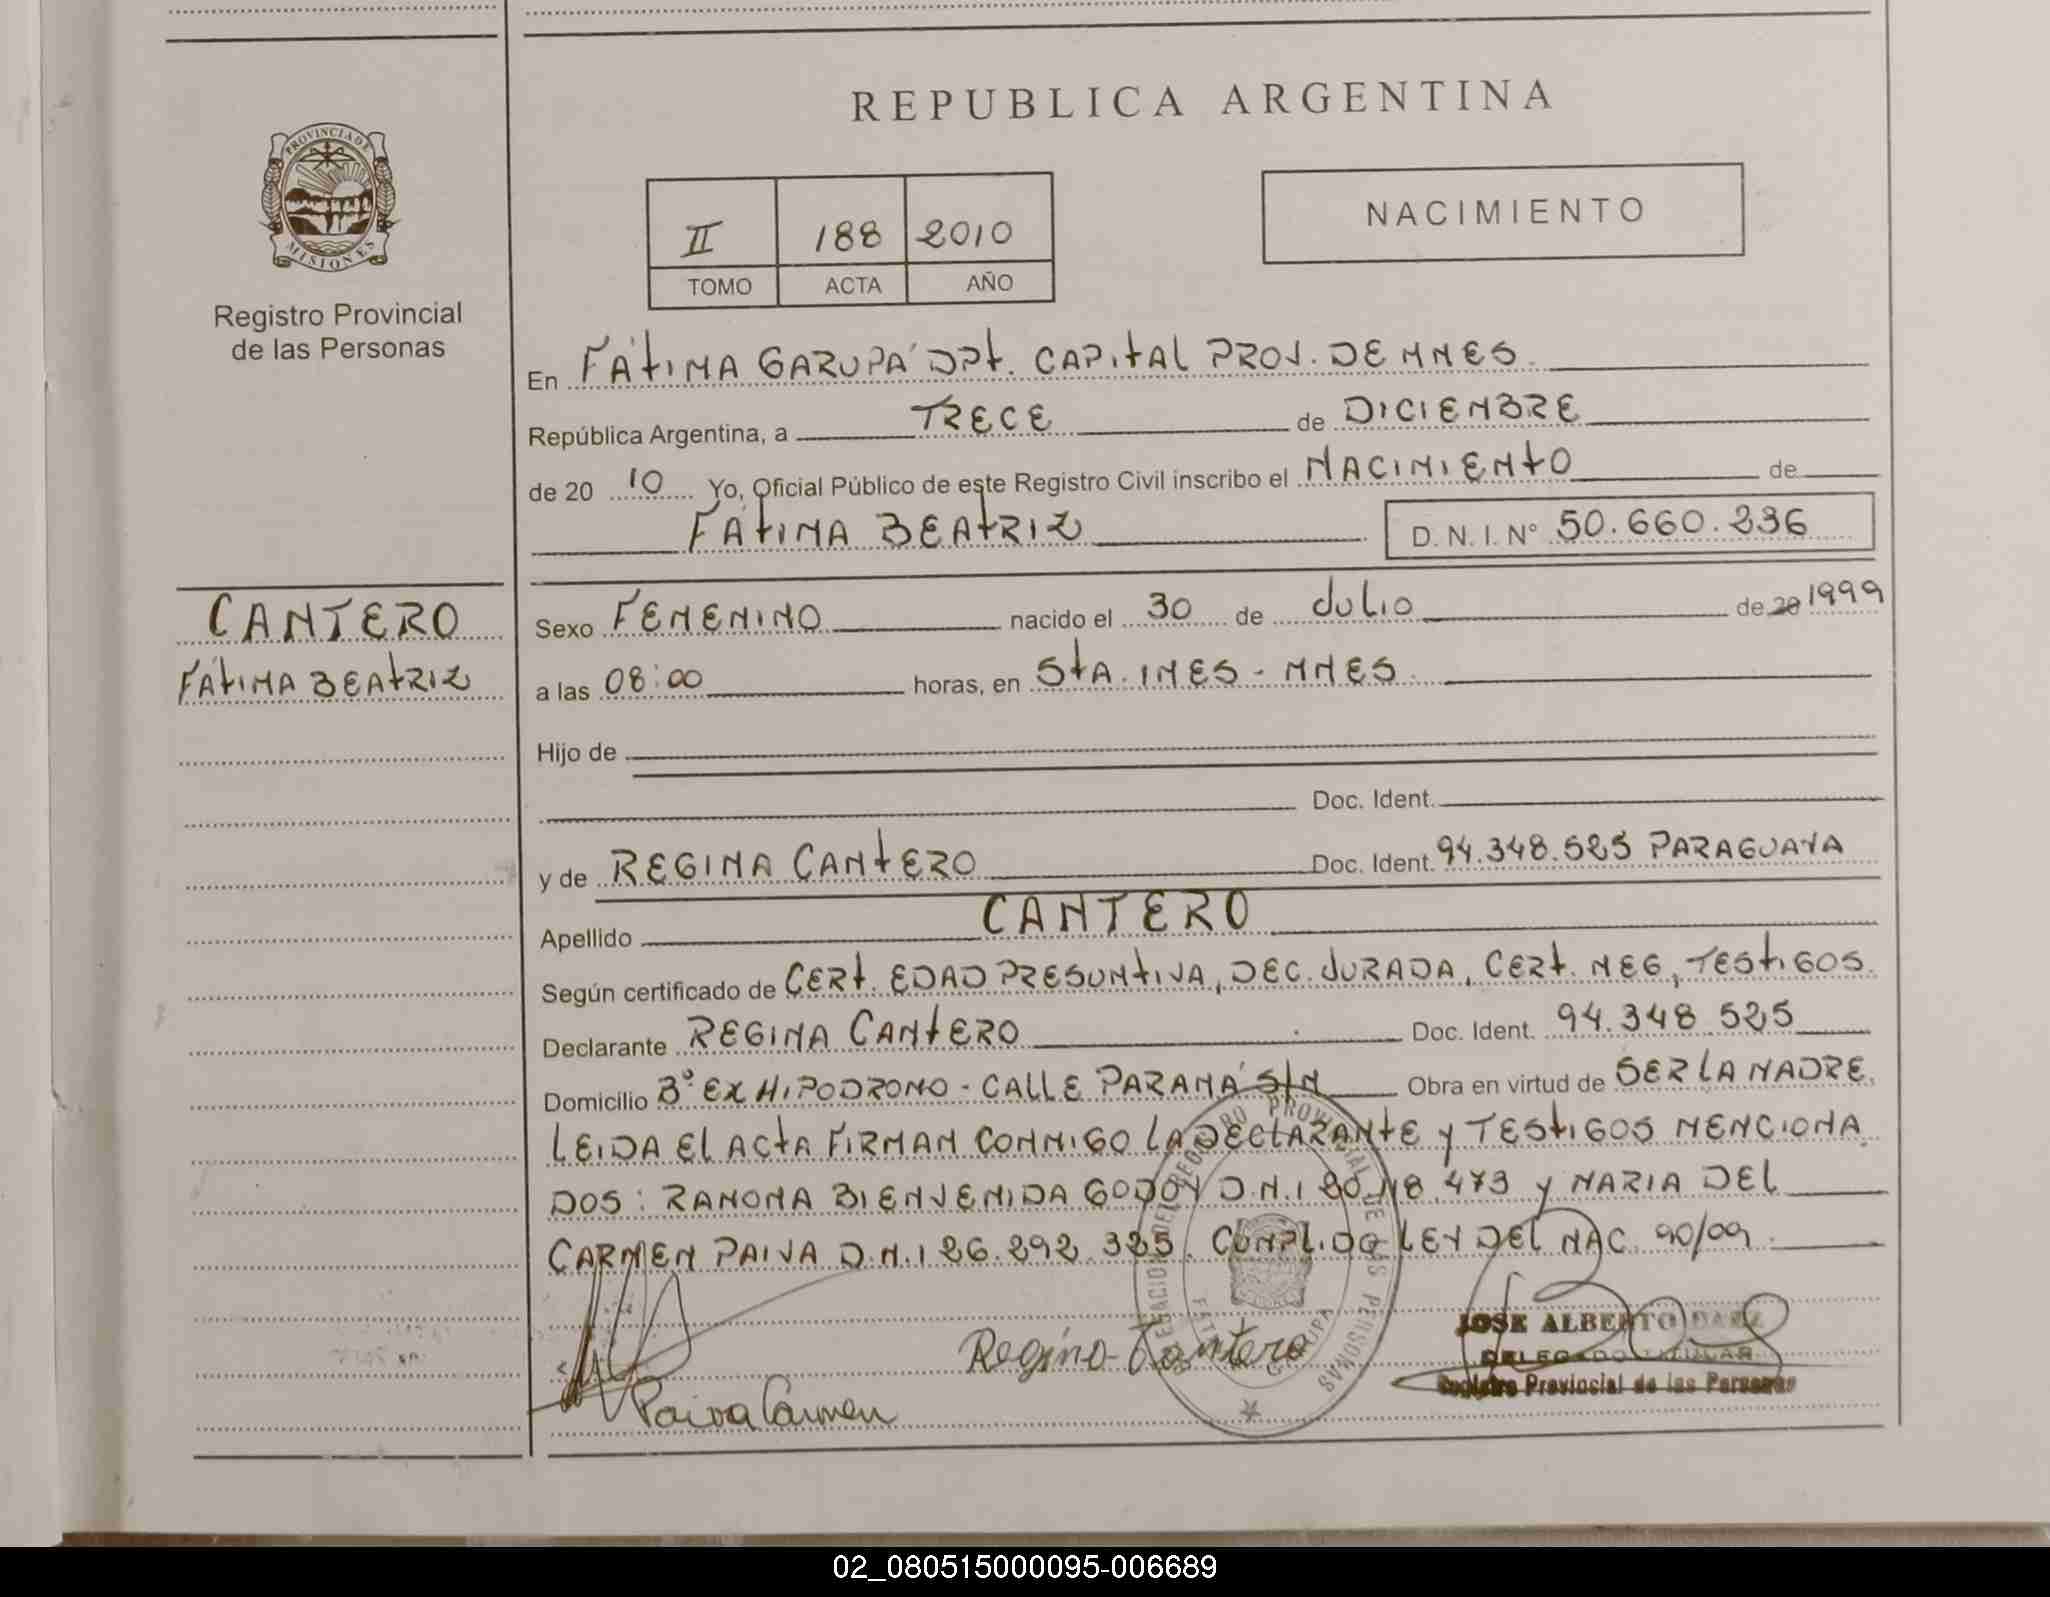 REPUBLICA ARGENTINA
PROVINCIA DE
MISIONES
Registro Provincial
de las Personas
II 188 2010
TOMO ACTA AÑO
NACIMIENTO
En FÁTIMA GARUPÁ DPT. CAPITAL PROV. DE MNES.
República Argentina, a TRECE de DICIEMBRE
de 20 10 Yo, Oficial Público de este Registro Civil inscribo el NACIMIENTO de
FÁTIMA BEATRIZ D.N.I. Nº 50.660.236
CANTERO
FÁTIMA BEATRIZ
Sexo FEMENINO nacido el 30 de JULIO de 20 1999
a las 08:00 horas, en STA. INES - MNES.
Hijo de
Doc. Ident.
y de REGINA CANTERO Doc. Ident. 94.348.525 PARAGUAYA
Apellido CANTERO
Según certificado de CERT. EDAD PRESUNTIVA, DEC. JURADA, CERT. NEG, TESTIGOS.
Declarante REGINA CANTERO Doc. Ident. 94.348.525
Domicilio Bº EX HIPODROMO - CALLE PARANÁ S/N Obra en virtud de SER LA MADRE.
LEIDA EL ACTA FIRMAN CONMIGO LA DECLARANTE Y TESTIGOS MENCIONA
DOS: RAMONA BIENVENIDA GODOY D.N.I 20.118.473 Y MARIA DEL
CARMEN PAIVA D.N.I 26.292.325. CUMPLIDO LEY DEL NAC. 90/09.
Paiva Carmen
Regina Cantero
DELEGACION DEL REGISTRO PROVINCIAL DE LAS PERSONAS
JOSE ALBERTO
DELEGADO TITULAR
Registro Provincial de las Personas
02_080515000095-006689